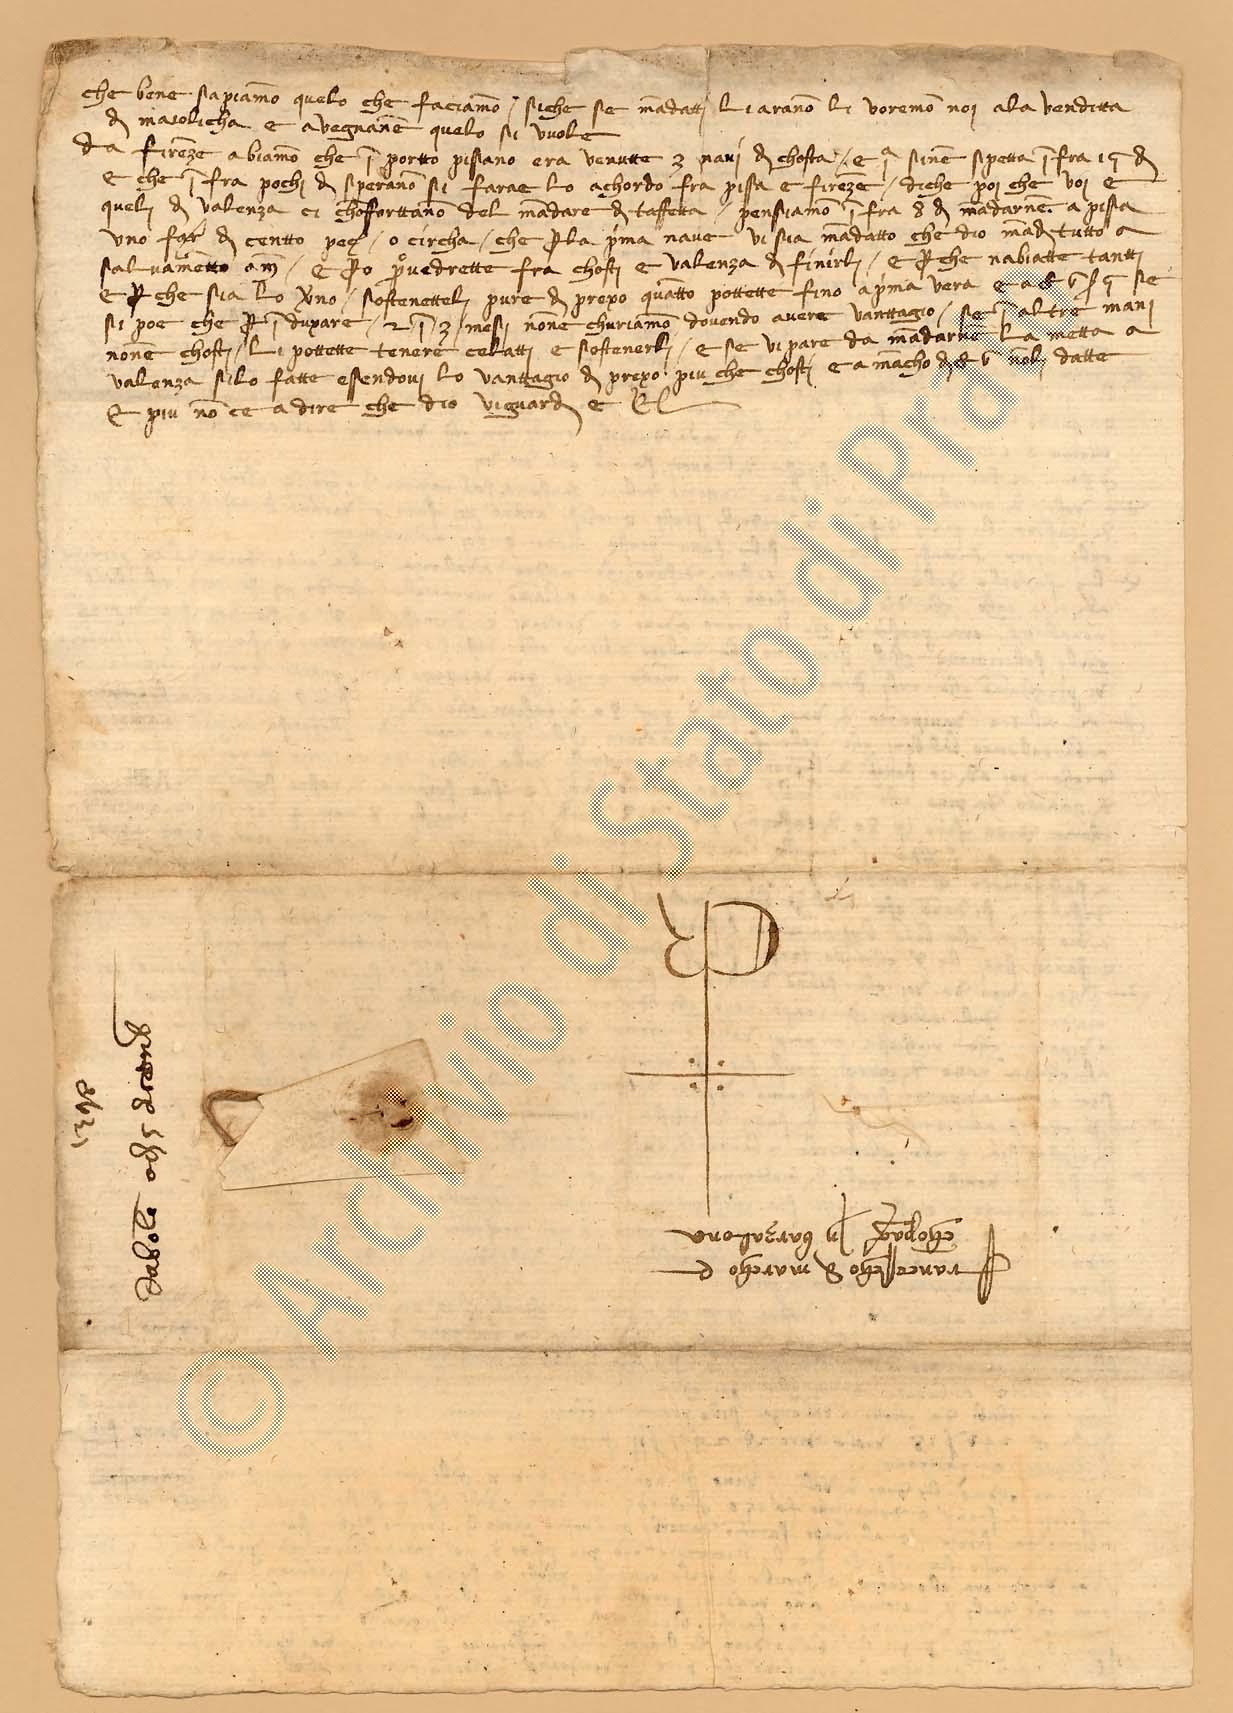 che bene sapiamo quelo che faciamo / siche se mãdatti li arano li voremo noi ala venditta
đ maiolicha e avegnane quelo si vuole
da firẽze abiamo che ĩ portto pissano era venutte 3 navi đ chosta / e sine spetta ĩ fra 15 đ
e che ĩ fra pochi đ sperano si farae lo achordo fra pissa e firẽze / diche poi che voi e
queli đ valenza ci chofforttano del mãdare đ taffetta / pensiamo ĩ fra 8 đ mãdarne a pissa
uno đ centto / o circha / che ꝑ la pima nave vi sia mãdatto che dio mãdi tutto a
salvamẽtto am̃ / e ꝑo provedrette fra chosti e valenza đ finirli / e ꝑche nabiatte tantti
e ꝑche sia lo / sostenetteli pure đ prexo quãtto pottette fino a pima vera e se
si poe che / 2 ĩ 3 / mesi none churiamo dovendo avere vanttagio / se ĩ altre mani
none chosti / li pottette tenere celatti e sostenerli / e se vi pare da mãdarne la metta a
valenza silo fatte essendovi lo vanttagio đ prexo piu che chosti e a mãcho noli datte
e piu no ce a dire che dio vi guardi
franceschо đ marcho e
chopãg ĩ barzalona
da bolo
1398
© Archivio di Stato di Prato